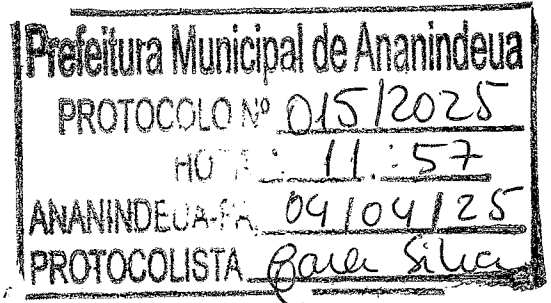 Prefeitura Municipal de Ananindeua
PROTOCOLO Nº 015/2025
11:57
ANANINDEUA-PA, 04/04/25
PROTOCOLISTA Silva